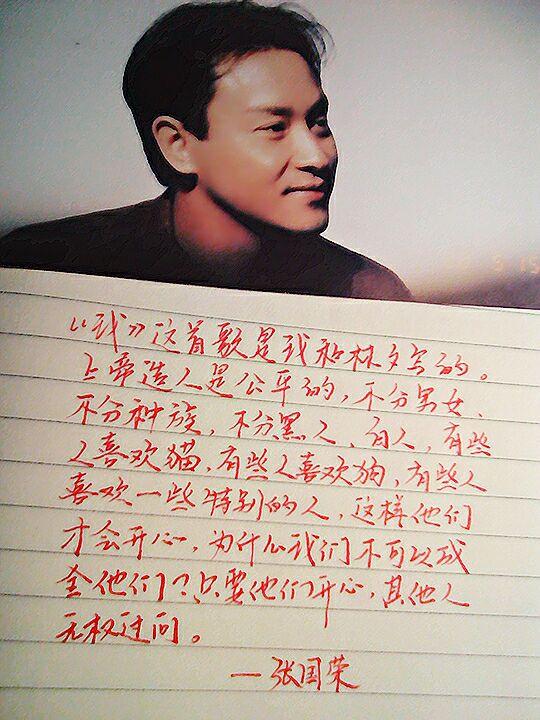 《我》这首歌是我和林夕写的。
上帝造人是公平的，不分男女、
不分种族，不分黑人、白人，有些
人喜欢猫，有些人喜欢狗，有些人
喜欢一些特别的人，这样他们
才会开心，为什么我们不可以成
全他们？只要他们开心，其他人
无权过问。
—张国荣